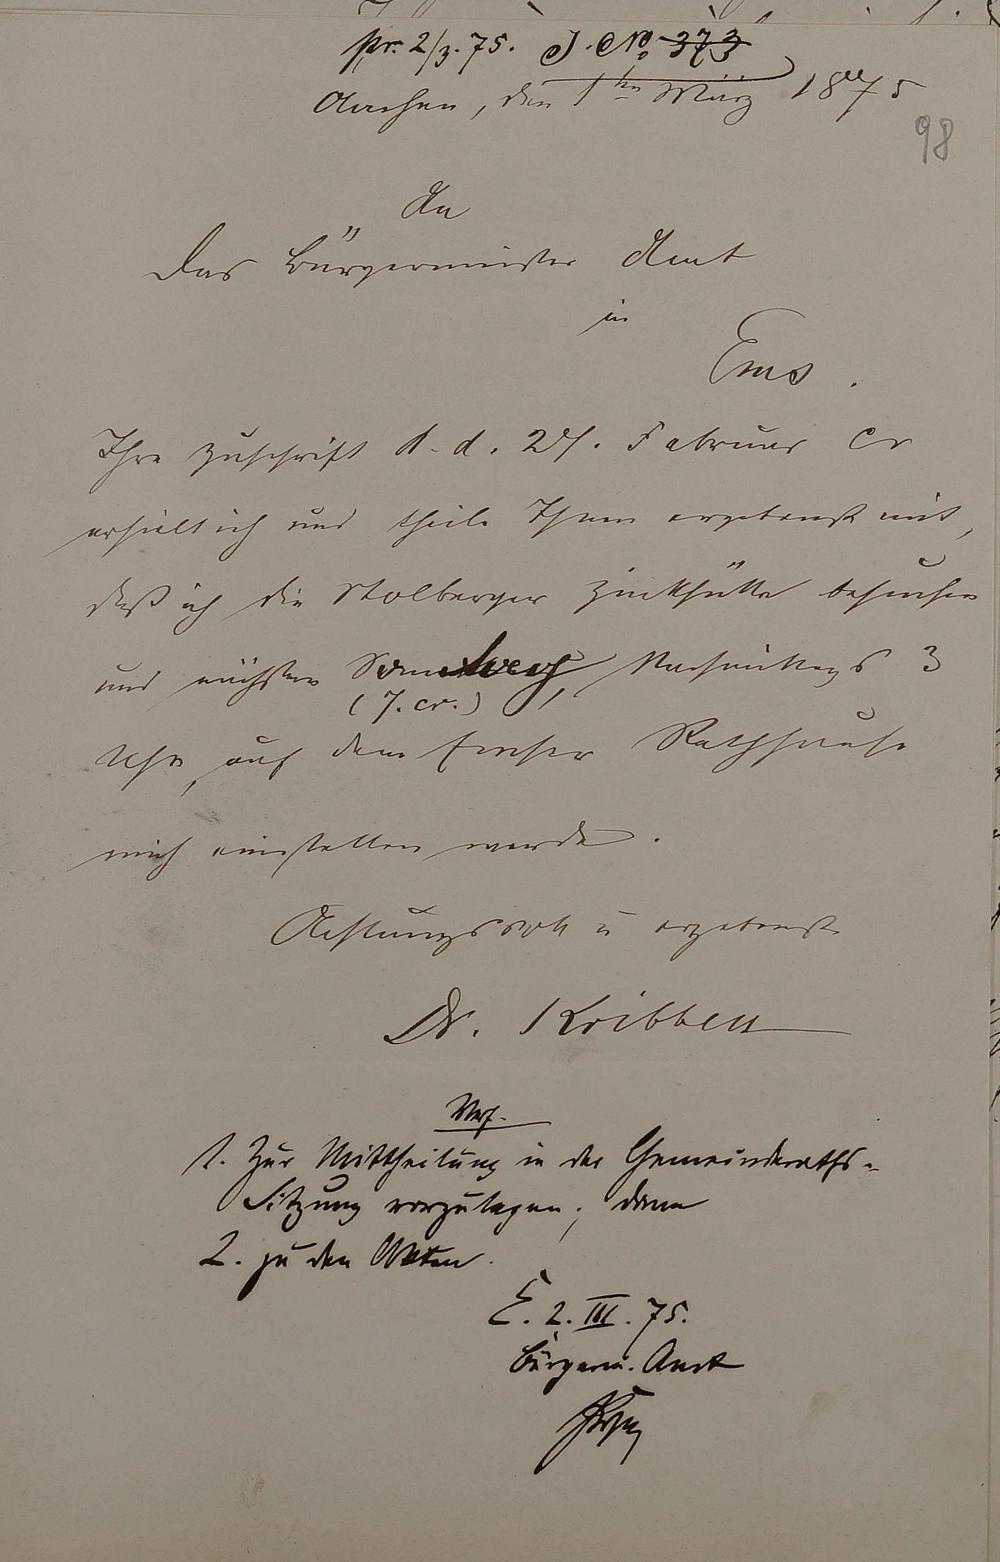 pr. 2/3. 75. J. No 373
Aachen, den 1ten März 1875
98
An
das Bürgermeister Amt
in
Ems.
Ihre Zuschrift d. d. 27. Februar cr
erhielt ich und theile Ihnen ergebenst mit,
daß ich die Stolberger Zinkhütte besuchen
und nächsten Sonntag, Nachmittags 3
(7. cr.)
Uhr, auf dem Emser Rathhause
mich einstellen werde.
Achtungsvoll u ergebenst
Dr. Kribben
Verf.
1. Zur Mittheilung in der Gemeinderaths-
Sitzung vorzulegen; dann
2. zu den Akten.
E. 2. III. 75.
Bürgerm. Amt